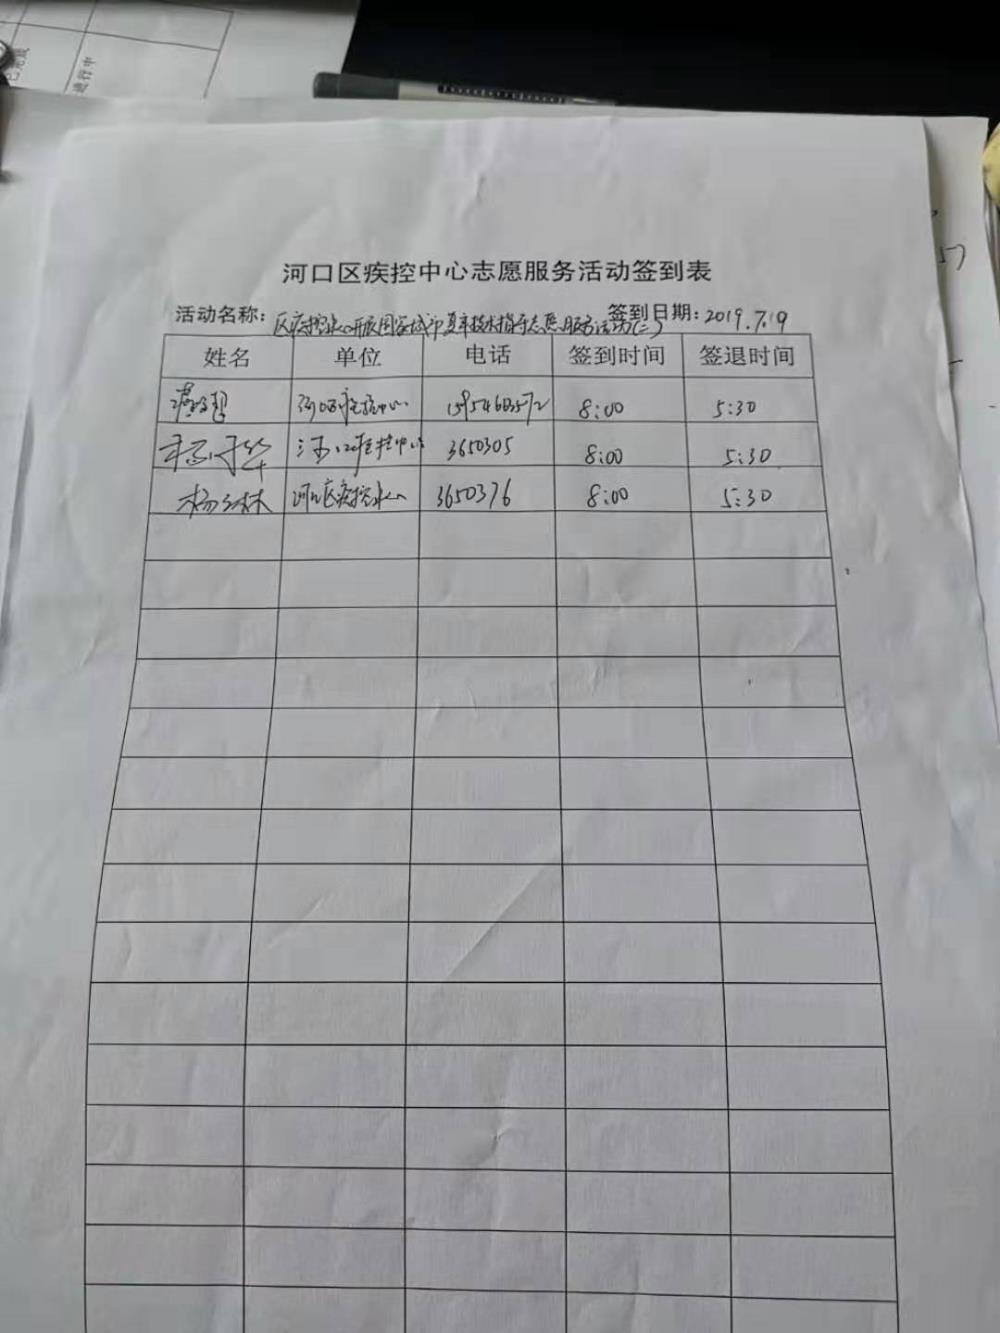 进行中
河口区疾控中心志愿服务活动签到表
活动名称：区疾控中心开展国家城市夏季技术指导志愿服务活动(二) 签到日期：2019.7.19
姓名 单位 电话 签到时间 签退时间
河口区疾控中心 8:00 5:30
河口区疾控中心 3650305 8:00 5:30
杨 林 河口区疾控中心 3650376 8:00 5:30